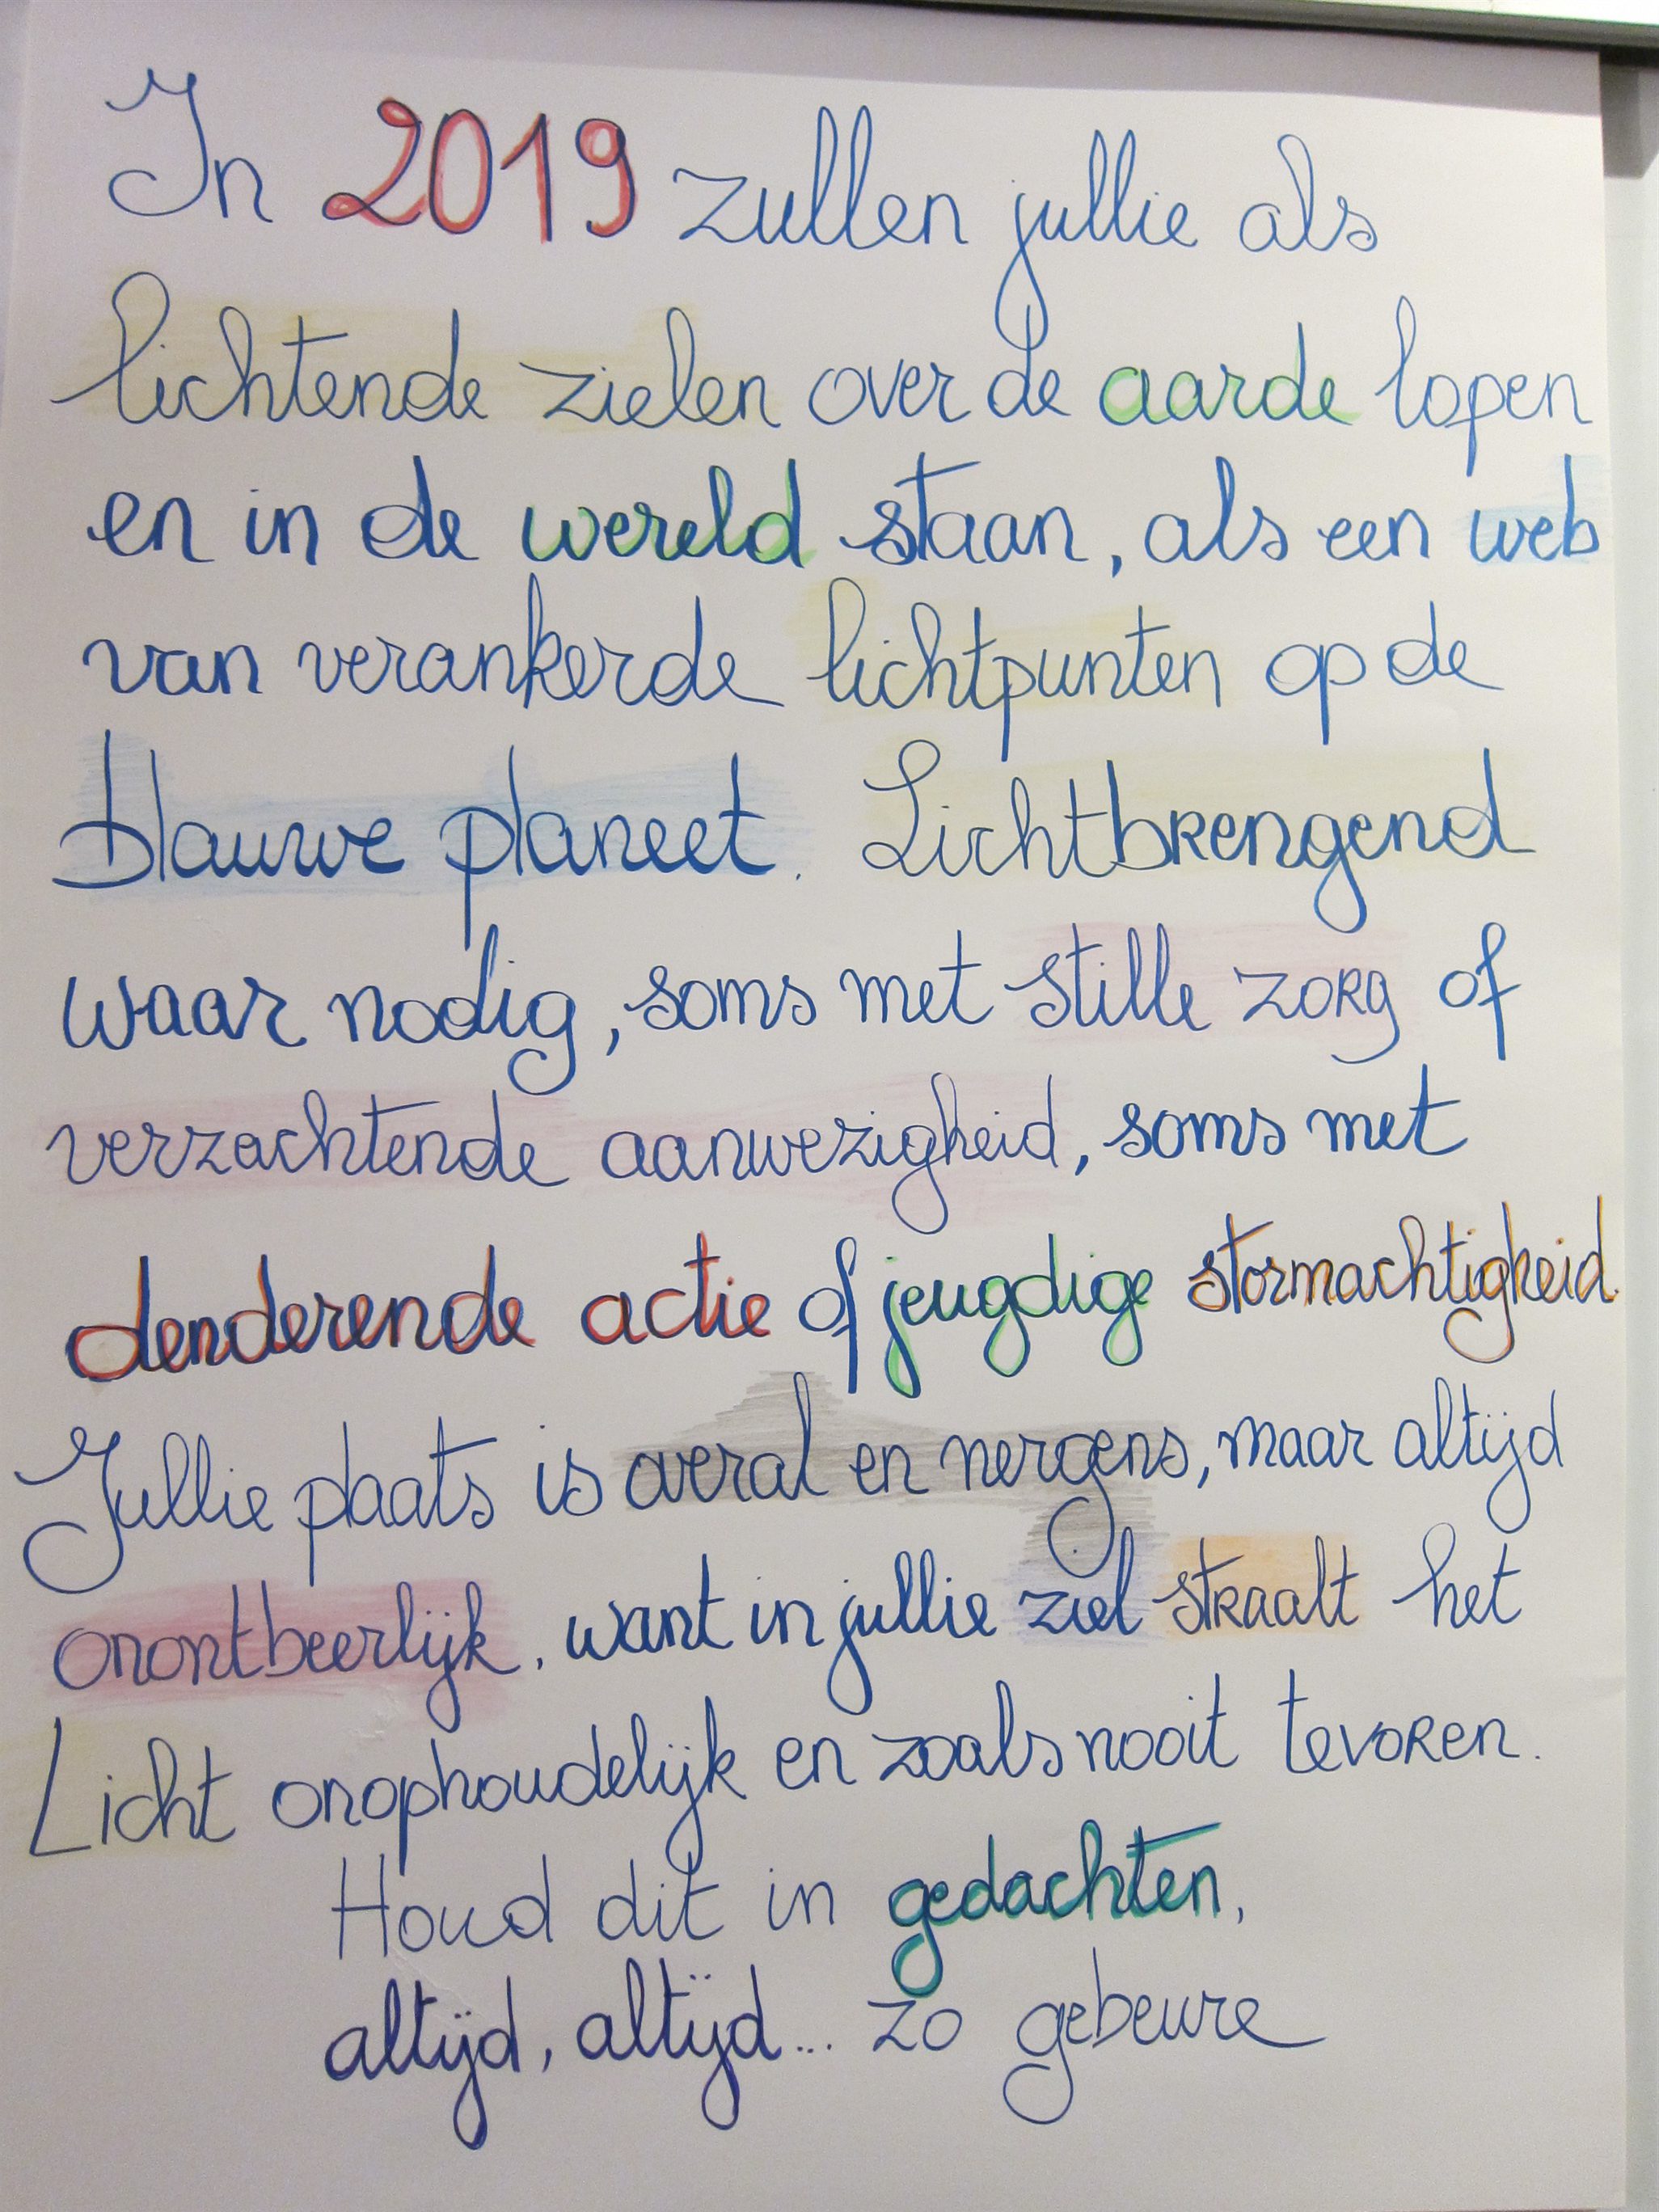 In 2019 zullen jullie als
lichtende zielen over de aarde lopen
en in de wereld staan, als een web
van verankerde lichtpunten op de
blauwe planeet. Lichtbrengend
waar nodig, soms met stille zorg of
verzachtende aanwezigheid, soms met
denderende actie of jeugdige stormachtigheid.
Jullie plaats is overal en nergens, maar altijd
onontbeerlijk, want in jullie ziel straalt het
Licht onophoudelijk en zoals nooit tevoren.
Houd dit in gedachten,
altijd, altijd... zo gebeure